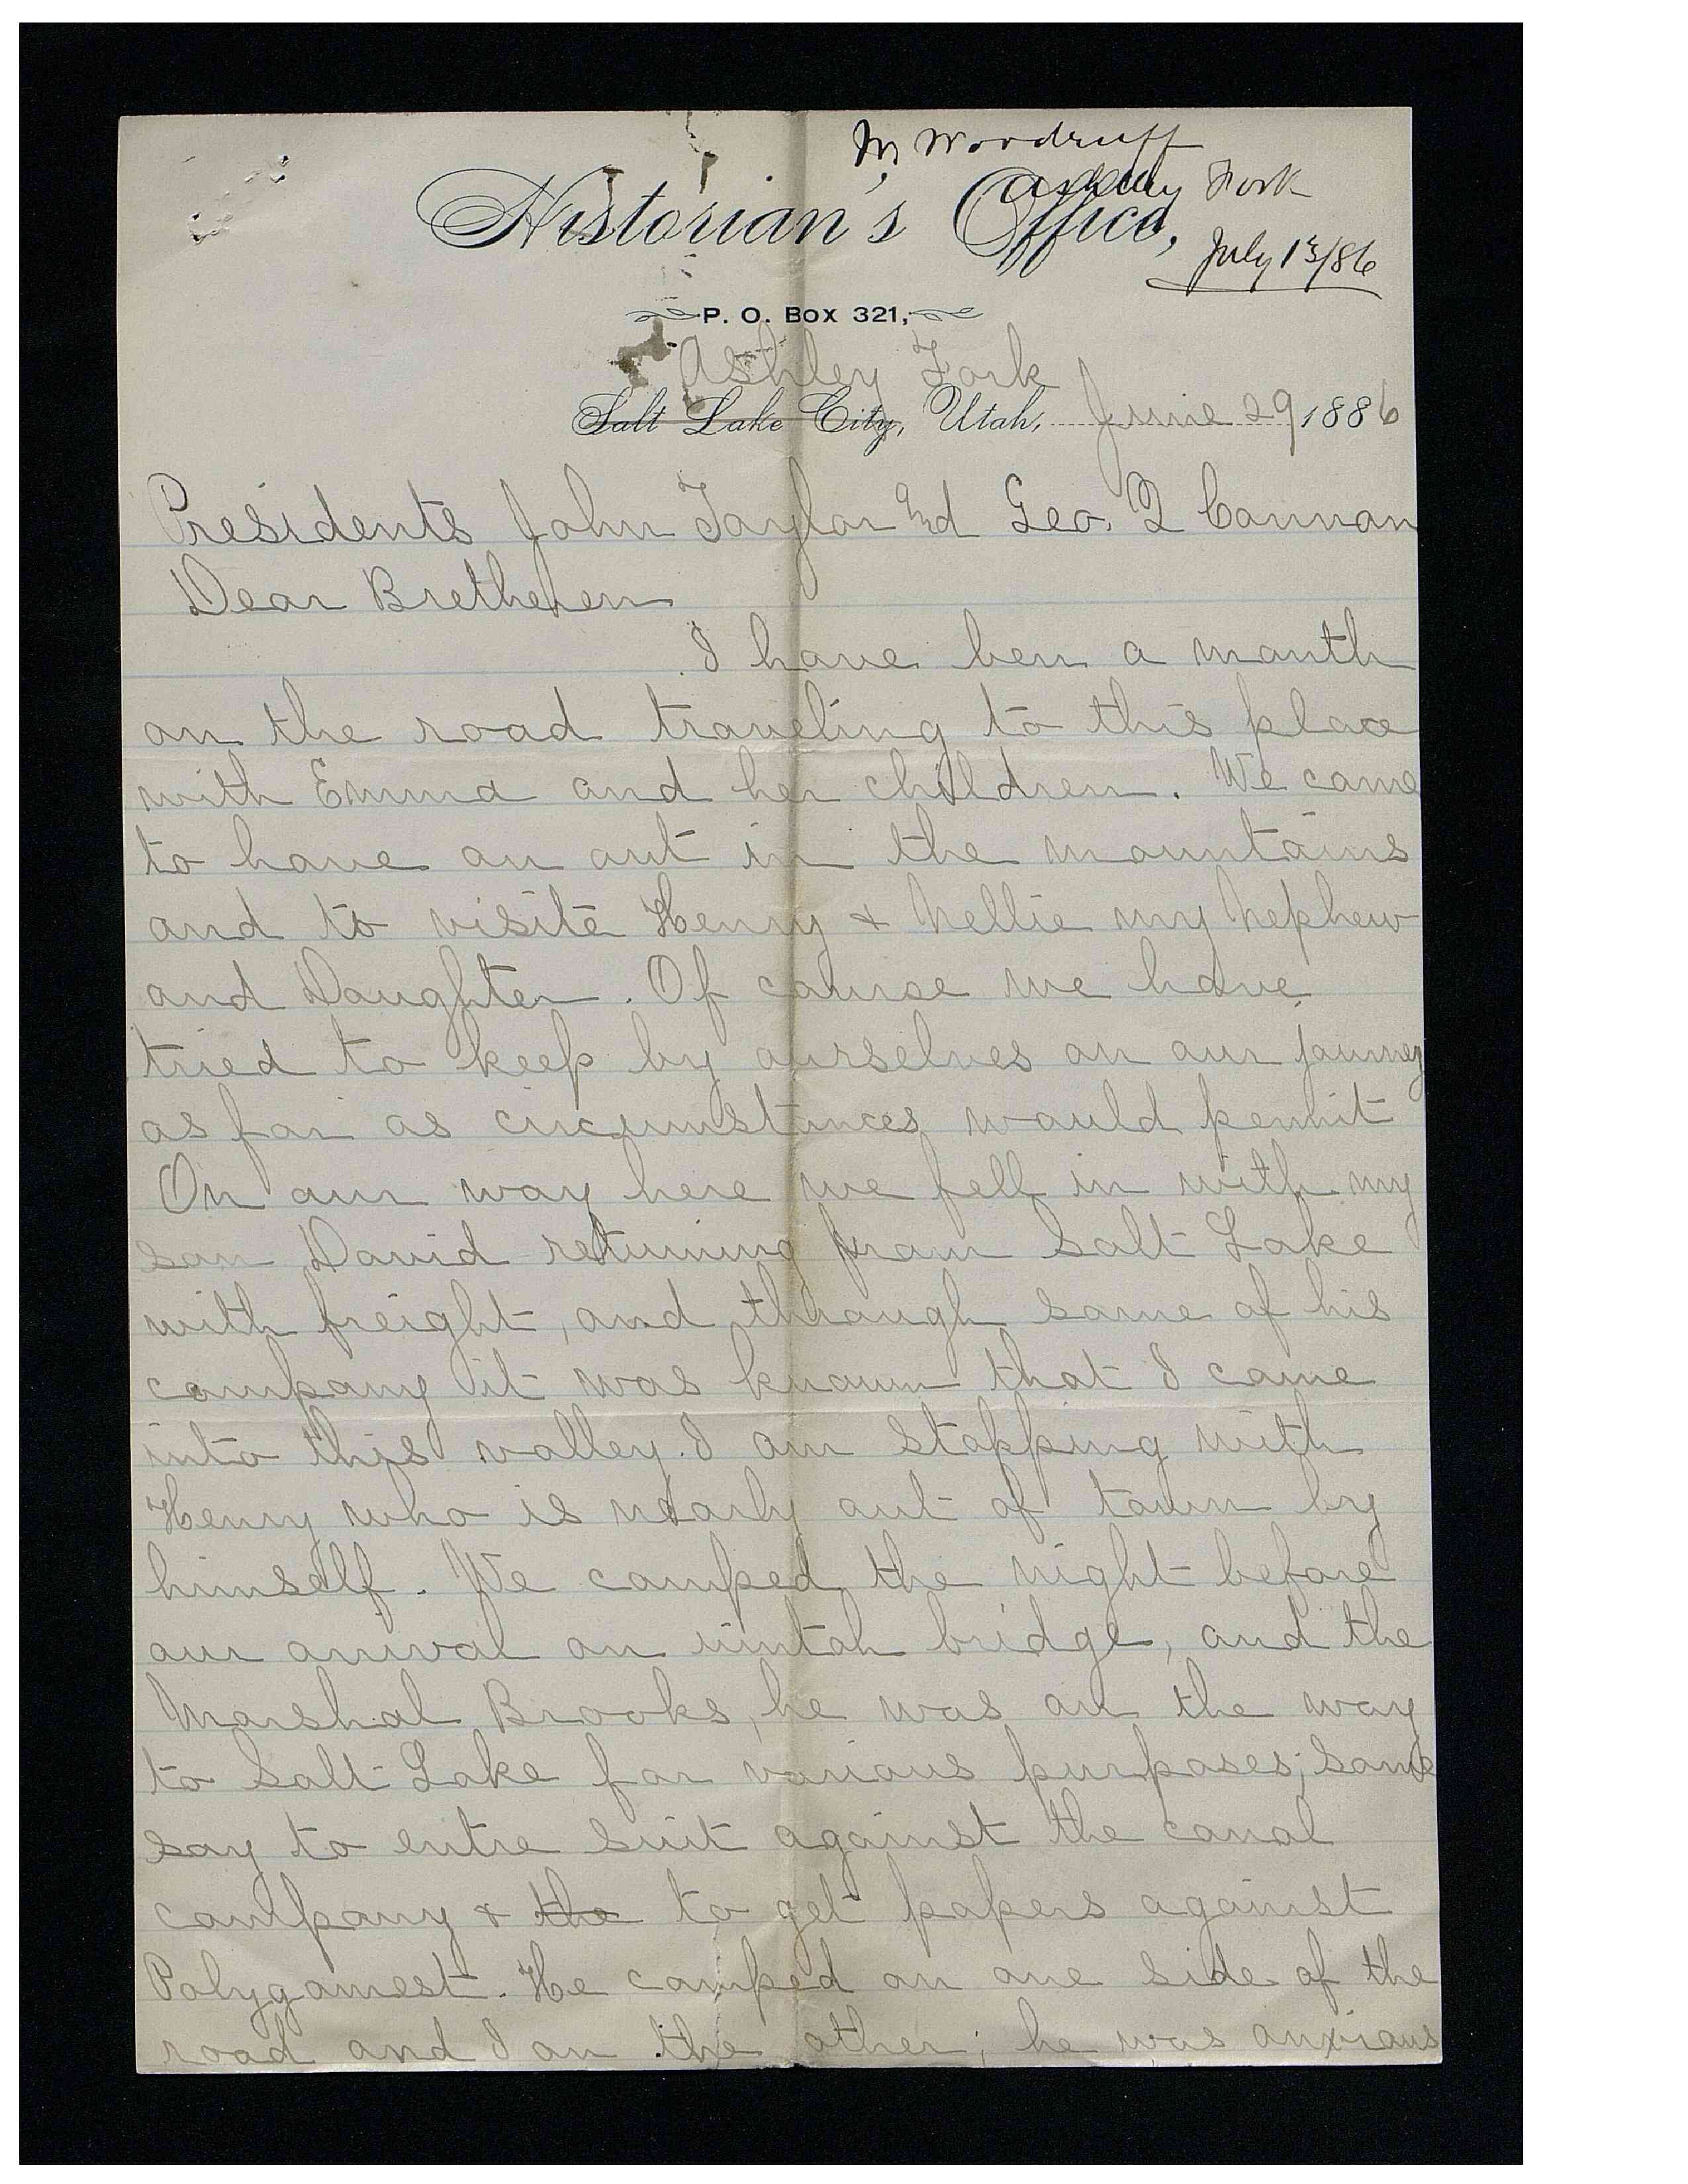 W. Woodruff
Ashley Fork
July 13/86
Historian's Office,
P. O. Box 321,
Ashley Fork
Salt Lake City, Utah, June 29 1886
Presidents John Taylor And Geo. Q Cannon
Dear Bretheren
I have ben a month
on the road traveling to this place
with Emma and her children. We came
to have an out in the mountains
and to visite Henry & Nellie my Nephew
and Daughter. Of course we have
tried to keep by ourselves on our journey
as far as circumstances would permit
On our way here we fell in with my
son David returning from Salt Lake
with freight, and through some of his
company it was known that I came
into this valley. I am stopping with
Henry who is nearly out of town by
himself. We camped the night before
our arrival on uintah bridge, and the
Marshal Brooks, he was on the way
to Salt Lake for various purposes; some
say to entre suit against the canal
company & the to get papers against
Polygamest. He camped on one side of the
road and I on the other; he was anxious